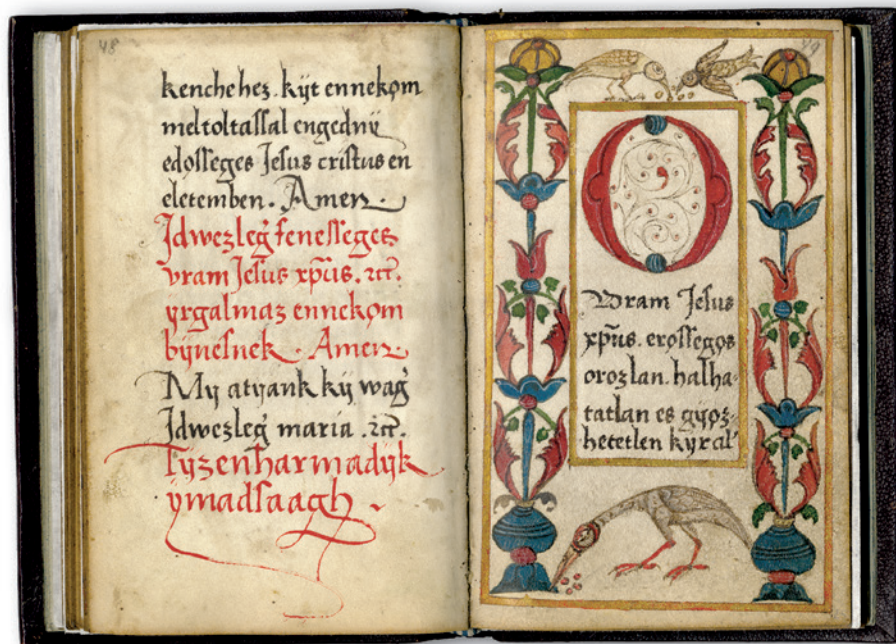 48
kenchehez. kÿt ennekọm
meltoltaſſal engednÿ
edọſſeges Jeſus criſtus en
eletemben. Amen.
Jdwezleǵ feneſſeges
vram Jeſus xp̃us. ⁊cꝫ.
ÿrgalmaz ennekọm
bÿneſnek. Amen.
My atÿank kÿ waǵ
Jdwezleǵ maria. ⁊cꝫ.
Tÿzenharmadÿk
ÿmadſaagh.
49
O
Vram Jeſus
xp̃us. erọſſegọs
orọzlan. halha-
tatlan es gÿọz-
hetetlen kÿral'